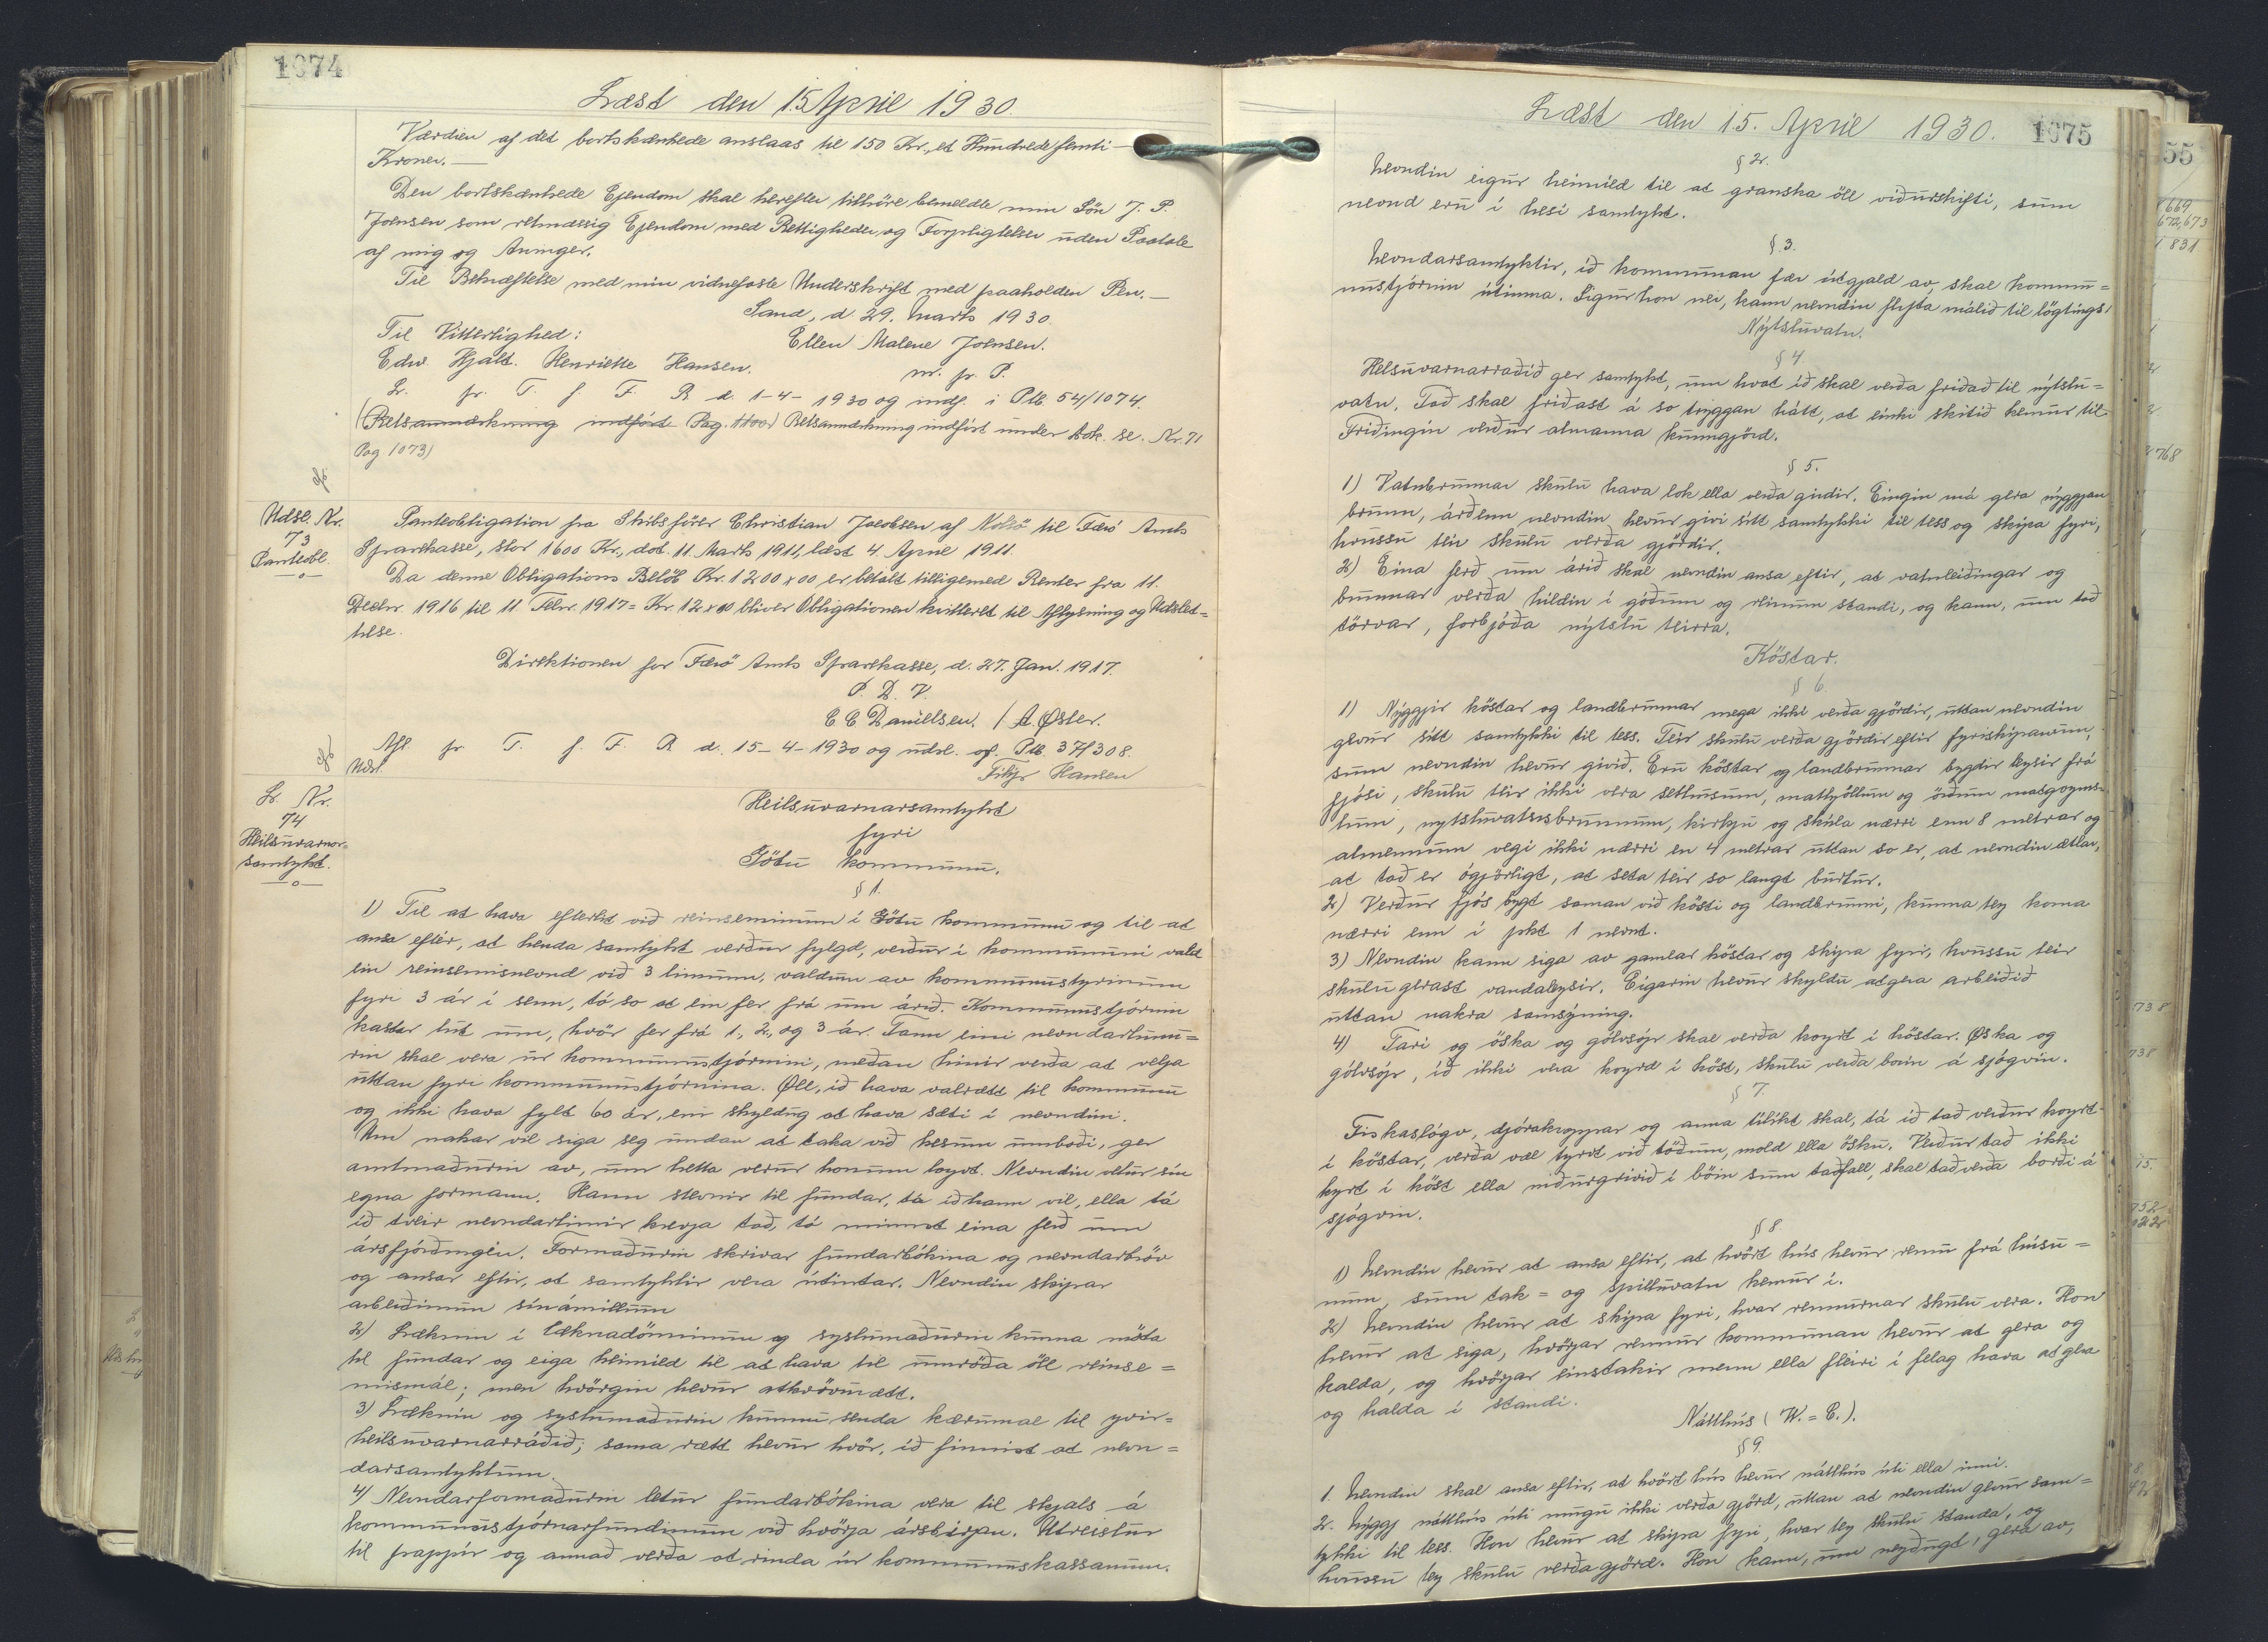 1074
Læst den 15 April 1930.
Værdien af det bortskænkede anslaas til 150 Kr., et Hundrede femti
Kroner. —
Den bortskænkede Ejendom skal herefter tilhöre bemeldte min Sön J. P.
Joensen som retmæssig Ejendom med Rettigheder og Forpligtelser uden Paatale
af mig og Arvinger.
Til Bekræftelse med min vidnefaste Underskrift med paaholden Pen. —
Sand, d. 29. Marts 1930.
Til Vitterlighed:
Ellen Malene Joensen.
Edw. Hjalt. Henriette Hansen.
m. p. P.
L. pr. T. f. F. R. d. 1-4-1930 og indf. i Ptb. 54/1074.
(Retsanmærkning indfört Pag. 1100) Retsanmærkning indfört under Adk. se. Nr. 71
Pag 1073)
Udsl. Nr.
73
Panteobl.
—o—
Panteobligation fra Skibsförer Christian Jacobsen af Nolsö til Færö Amts
Sparekasse, stor 1600 Kr., dat. 11. Marts 1911, læst 4. April 1911.
Da denne Obligations Belöb Kr. 1200 x 00 er betalt tilligemed Renter fra 11.
Decbr. 1916 til 11 Febr. 1917 = Kr 12 x 00 bliver Obligationen kvitteret til Aflysning og Udslet=
telse.
Direktionen for Færö Amts Sparekasse, d. 27. Jan. 1917.
P. D. V.
C. C Danielsen. / A. Øster.
Afl. pr T. f. F. R d. 15-4-1930 og udsl. af. Ptb. 37/308.
Udsl.
Filip Hansen
L. Nr.
74
Heilsuvarnar-
samtykt.
—o—
Heilsuvarnarsamtykt
fyri
Götu kommunu.
§ 1.
1) Til at hava eftirlit við reinseminum i Götu kommunu og til at
ansa eftir, at henda samtykt verður fylgd, verður i kommununi vald
ein reinsemisnevnd við 3 limum, valdum av kommunustýrinum
fyri 3 ár i senn, tó so at ein fer frá um árið. Kommunustjórnin
kastar lut um, hvör fer frá 1., 2., og 3 ár. Tann eini nevndarlimu=
rin skal vera úr kommunustjórnini, meðan hinir verða at velja
uttan fyri kommunustjórnina. Øll, ið hava valrætt til kommunu
og ikki hava fylt 60 ár, eru skyldug at hava sæti i nevndini.
Um nakar vil siga seg undan at taka við hesum umboði, ger
amtmaðurin av, um hetta verur honum loyvt. Nevndin velur sin
egna formann. Hann stevnir til fundar, tá ið hann vil, ella tá
ið tveir nevndarlimir krevja tað, tó minnst eina ferð um
ársfjórðingin. Formaðurin skrivar fundarbókina og nevndarbröv
og ansar eftir, at samtyktir vera útintar. Nevndin skipar
arbeiðinum sínámillum
2) Læknin i læknadöminum og syslumaðurin kunna möta
til fundar og eiga heimild til at hava til umröða öll reinse=
mismál; men hvörgin hevur atkvöðurætt.
3) Læknin og syslumaðurin kunnu senda kærumal til yvir=
heilsuvarnarráðið; sama rætt hevur hvör, ið finnist at nevn=
darsamtyktum.
4) Nevndarformaðurin letur fundarbókina vera til skjals á
kommunustjórnarfundinum við hvörja ársbirjan. Útreislur
til pappir og annað verða at rinda úr kommunukassanum.
1075
Læst den 15. April 1930.
§ 2.
Nevndin eigur heimild til at granska öll viðurskifti, sum
nevnd eru i hesi samtykt.
§ 3.
Nevndarsamtyktir, ið kommunan fær útgjald av, skal kommu=
nustjórnin útinna. Sigur hon nei, kann nevndin flyta málið til lögtings!
Nýtsluvatn.
§ 4.
Heilsuvarnarraðið ger samtykt, um hvat ið skal verða friðað til nýtslu=
vatn. Tað skal friðast á so tryggan hátt, at einki skitið kemur til.
Friðingin verður almanna kunngjörd.
§ 5.
1) Vatnbrunnar skulu hava lok ella verða girdir. Eingin má gera nýggjan
brunn, árðenn nevndin hevur givi sitt samtykki til tess og skipa fyri,
hvussu teir skulu verða gjördir.
2) Eina ferð um árið skal nevndin ansa eftir, at vatnleiðingar og
brunnar verða hildin i góðum og reinum standi, og kann, um tað
törvar, forbjóða nýtslu teirra.
Köstar.
§ 6.
1) Nýggjir köstar og landbrunnar mega ikki verða gjördir, uttan nevndin
gevur sitt samtykki til tess. Teir skulu verða gjördir eftir fyriskipanum,
sum nevndin hevur givið. Eru köstar og landbrunnar bygdir leysir frá
fjósi, skulu teir ikki vera sethusum, mathjöllum og öðrum matgoyms=
lum, nytsluvatnsbrunnum, kirkju og skúla nærri enn 8 metrar og
almennum vegi ikki nærri en 4 metrar uttan so er, at nevndin ætlar,
at tað er ógjörligt, at seta teir so langt burtur.
2) Verður fjós bygt saman við kösti og landbrunni, kunna tey koma
nærri enn i pkt 1 nevnt.
3) Nevndin kann siga av gamlar köstar og skipa fyri, hvussu teir
skulu gerast vandaleysir. Eigarin hevur skyldu at gera arbeiðið
uttan nakra samsýning.
4) Tari og öska og gólvsóp skal verða koyrt i köstar. Øska og
gólvsóp, ið ikki vera koyrd i köst, skulu verða borin á sjógvin.
§ 7.
Fiskaslógv, djórakroppar og anna tílikt skal, tá ið tað verður koyrt
i köstar, verða væl tyrvt við töðum, mold ella ösku. Verður tað ikki
koyrt i köst ella niðurgrivið i böin sum taðfall, skal tað verða borði á
sjógvin.
§ 8.
1) Nevndin hevur at ansa eftir, at hvört hús hevur rennu frá húsu=
num, sum tak= og spilluvatn kemur i.
2) Nevndin hevur at skipa fyri, hvar rennurnar skulu vera. Hon
hevur at siga, hvörjar rennur kommunan hevur at gera og
halda, og hvörjar einstakir menn ella fleiri i felag hava at gera
og halda i standi.
Nátthús (W.=C.).
§ 9.
1. Nevndin skal ansa eftir, at hvört hús hevur nátthús úti ella inni.
2. Nýggj nátthús úti mugu ikki verða gjörd, uttan at nevndin gevur sam=
tykki til tess. Hon hevur at skipa fyri, hvar tey skulu standa, og
hvussu tey skulu verða gjörd. Hon kann, um neyðugt, gera av,